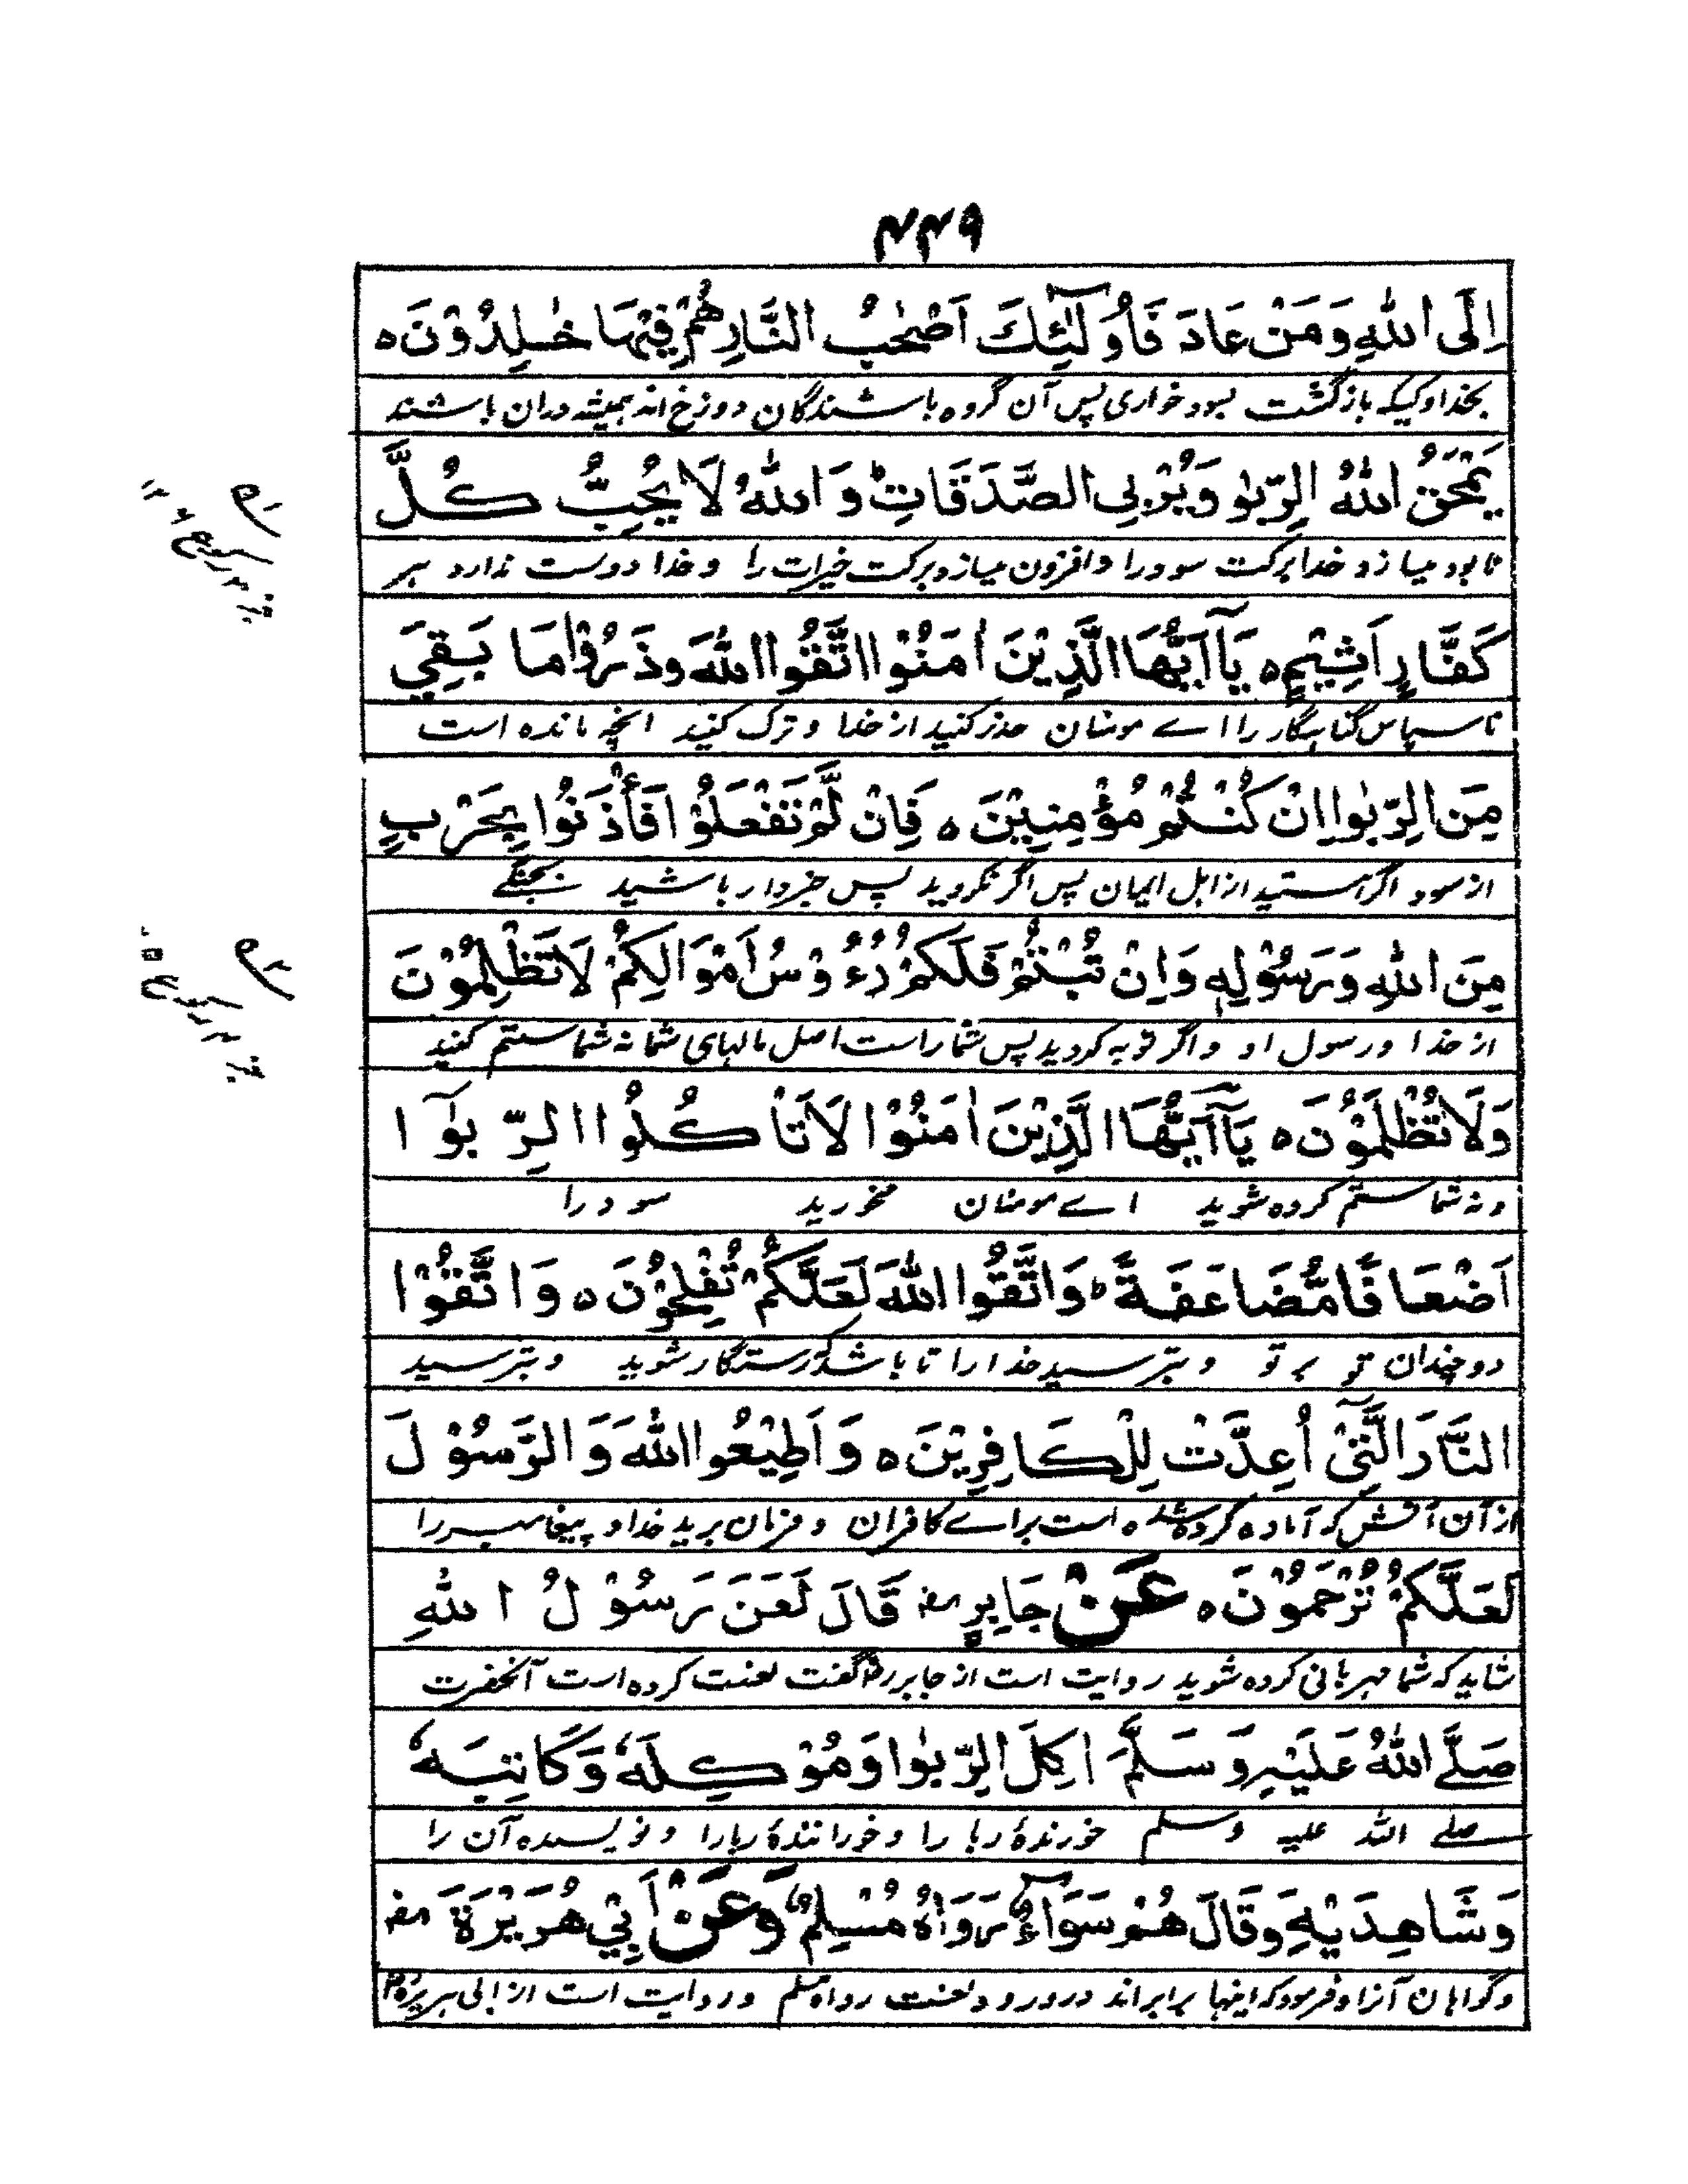 ۴۴۹
اِلَى اللّٰهِ وَمَنْ عَادَ فَاُولٰٓئِكَ اَصْحٰبُ النَّارِ هُمْ فِيْهَا خٰلِدُوْنَ ه
بخدا و کسیکه بازگشت بسود خواری پس آن گروه باشندگان دوزخ اند همیشه دران باشند
يَمْحَقُ اللّٰهُ الرِّبٰو وَيُرْبِى الصَّدَقَاتِ ط وَاللّٰهُ لَا يُحِبُّ كُلَّ
نابود میسازد خدا برکت سود را و افزون میسازد برکت خیرات را و خدا دوست ندارد هر
كَفَّارٍ اَثِيْمٍ ه يَآ اَيُّهَا الَّذِيْنَ اٰمَنُوْا اتَّقُوا اللّٰهَ وَذَرُوْا مَا بَقِيَ
ناسپاس گناهگار را اے مومنان حذر کنید از خدا و ترک کنید انچه مانده است
مِنَ الرِّبٰوا اِنْ كُنْتُمْ مُؤْمِنِيْنَ ه فَاِنْ لَّمْ تَفْعَلُوْا فَأْذَنُوْا بِحَرْبٍ
از سود اگر هستید از اہل ایمان پس اگر نکردید پس خبردار باشید بجنگے
مِنَ اللّٰهِ وَرَسُوْلِهٖ وَاِنْ تُبْتُمْ فَلَكُمْ رُءُوْسُ اَمْوَالِكُمْ لَا تَظْلِمُوْنَ
از خدا و رسول او و اگر توبه کردید پس شما راست اصل مالهای شما نه شما ستم کنید
وَلَا تُظْلَمُوْنَ ه يَآ اَيُّهَا الَّذِيْنَ اٰمَنُوْا لَا تَاْكُلُوا الرِّبٰوٓا
و نه شما ستم کرده شوید اے مومنان مخورید سود را
اَضْعَافًا مُّضَاعَفَةً ط وَاتَّقُوا اللّٰهَ لَعَلَّكُمْ تُفْلِحُوْنَ ه وَاتَّقُوْا
دوچندان تو بر تو و بترسید خدا را تا باشد که رستگار شوید و بترسید
النَّارَ الَّتِىْٓ اُعِدَّتْ لِلْكَافِرِيْنَ ه وَاَطِيْعُوا اللّٰهَ وَالرَّسُوْلَ
از آن آتش که آماده کرده شده است براے کافران و فرمان برید خدا و پیغامبر را
لَعَلَّكُمْ تُرْحَمُوْنَ ه عَنْ جَابِرٍ رض قَالَ لَعَنَ رَسُوْلُ اللّٰهِ
شاید که شما مهربانی کرده شوید روایت است از جابر رض گفت لعنت کرده است آنحضرت
صَلَّے اللّٰهُ عَلَيْهِ وَسَلَّمَ اٰكِلَ الرِّبٰوا وَمُوْكِلَهٗ وَكَاتِبَهٗ
صلے اللہ علیہ وسلم خورندهٔ ربا را و خورانندهٔ ربا را و نویسنده آن را
وَشَاهِدَيْهِ وَقَالَ هُمْ سَوَآءٌ رَوَاهُ مُسْلِمٌ وَعَنْ اَبِيْ هُرَيْرَةَ رض
و گواہان آنرا و فرمود که اینها برابراند در ورود لعنت رواه مسلم و روایت است از ابی ہریره رض